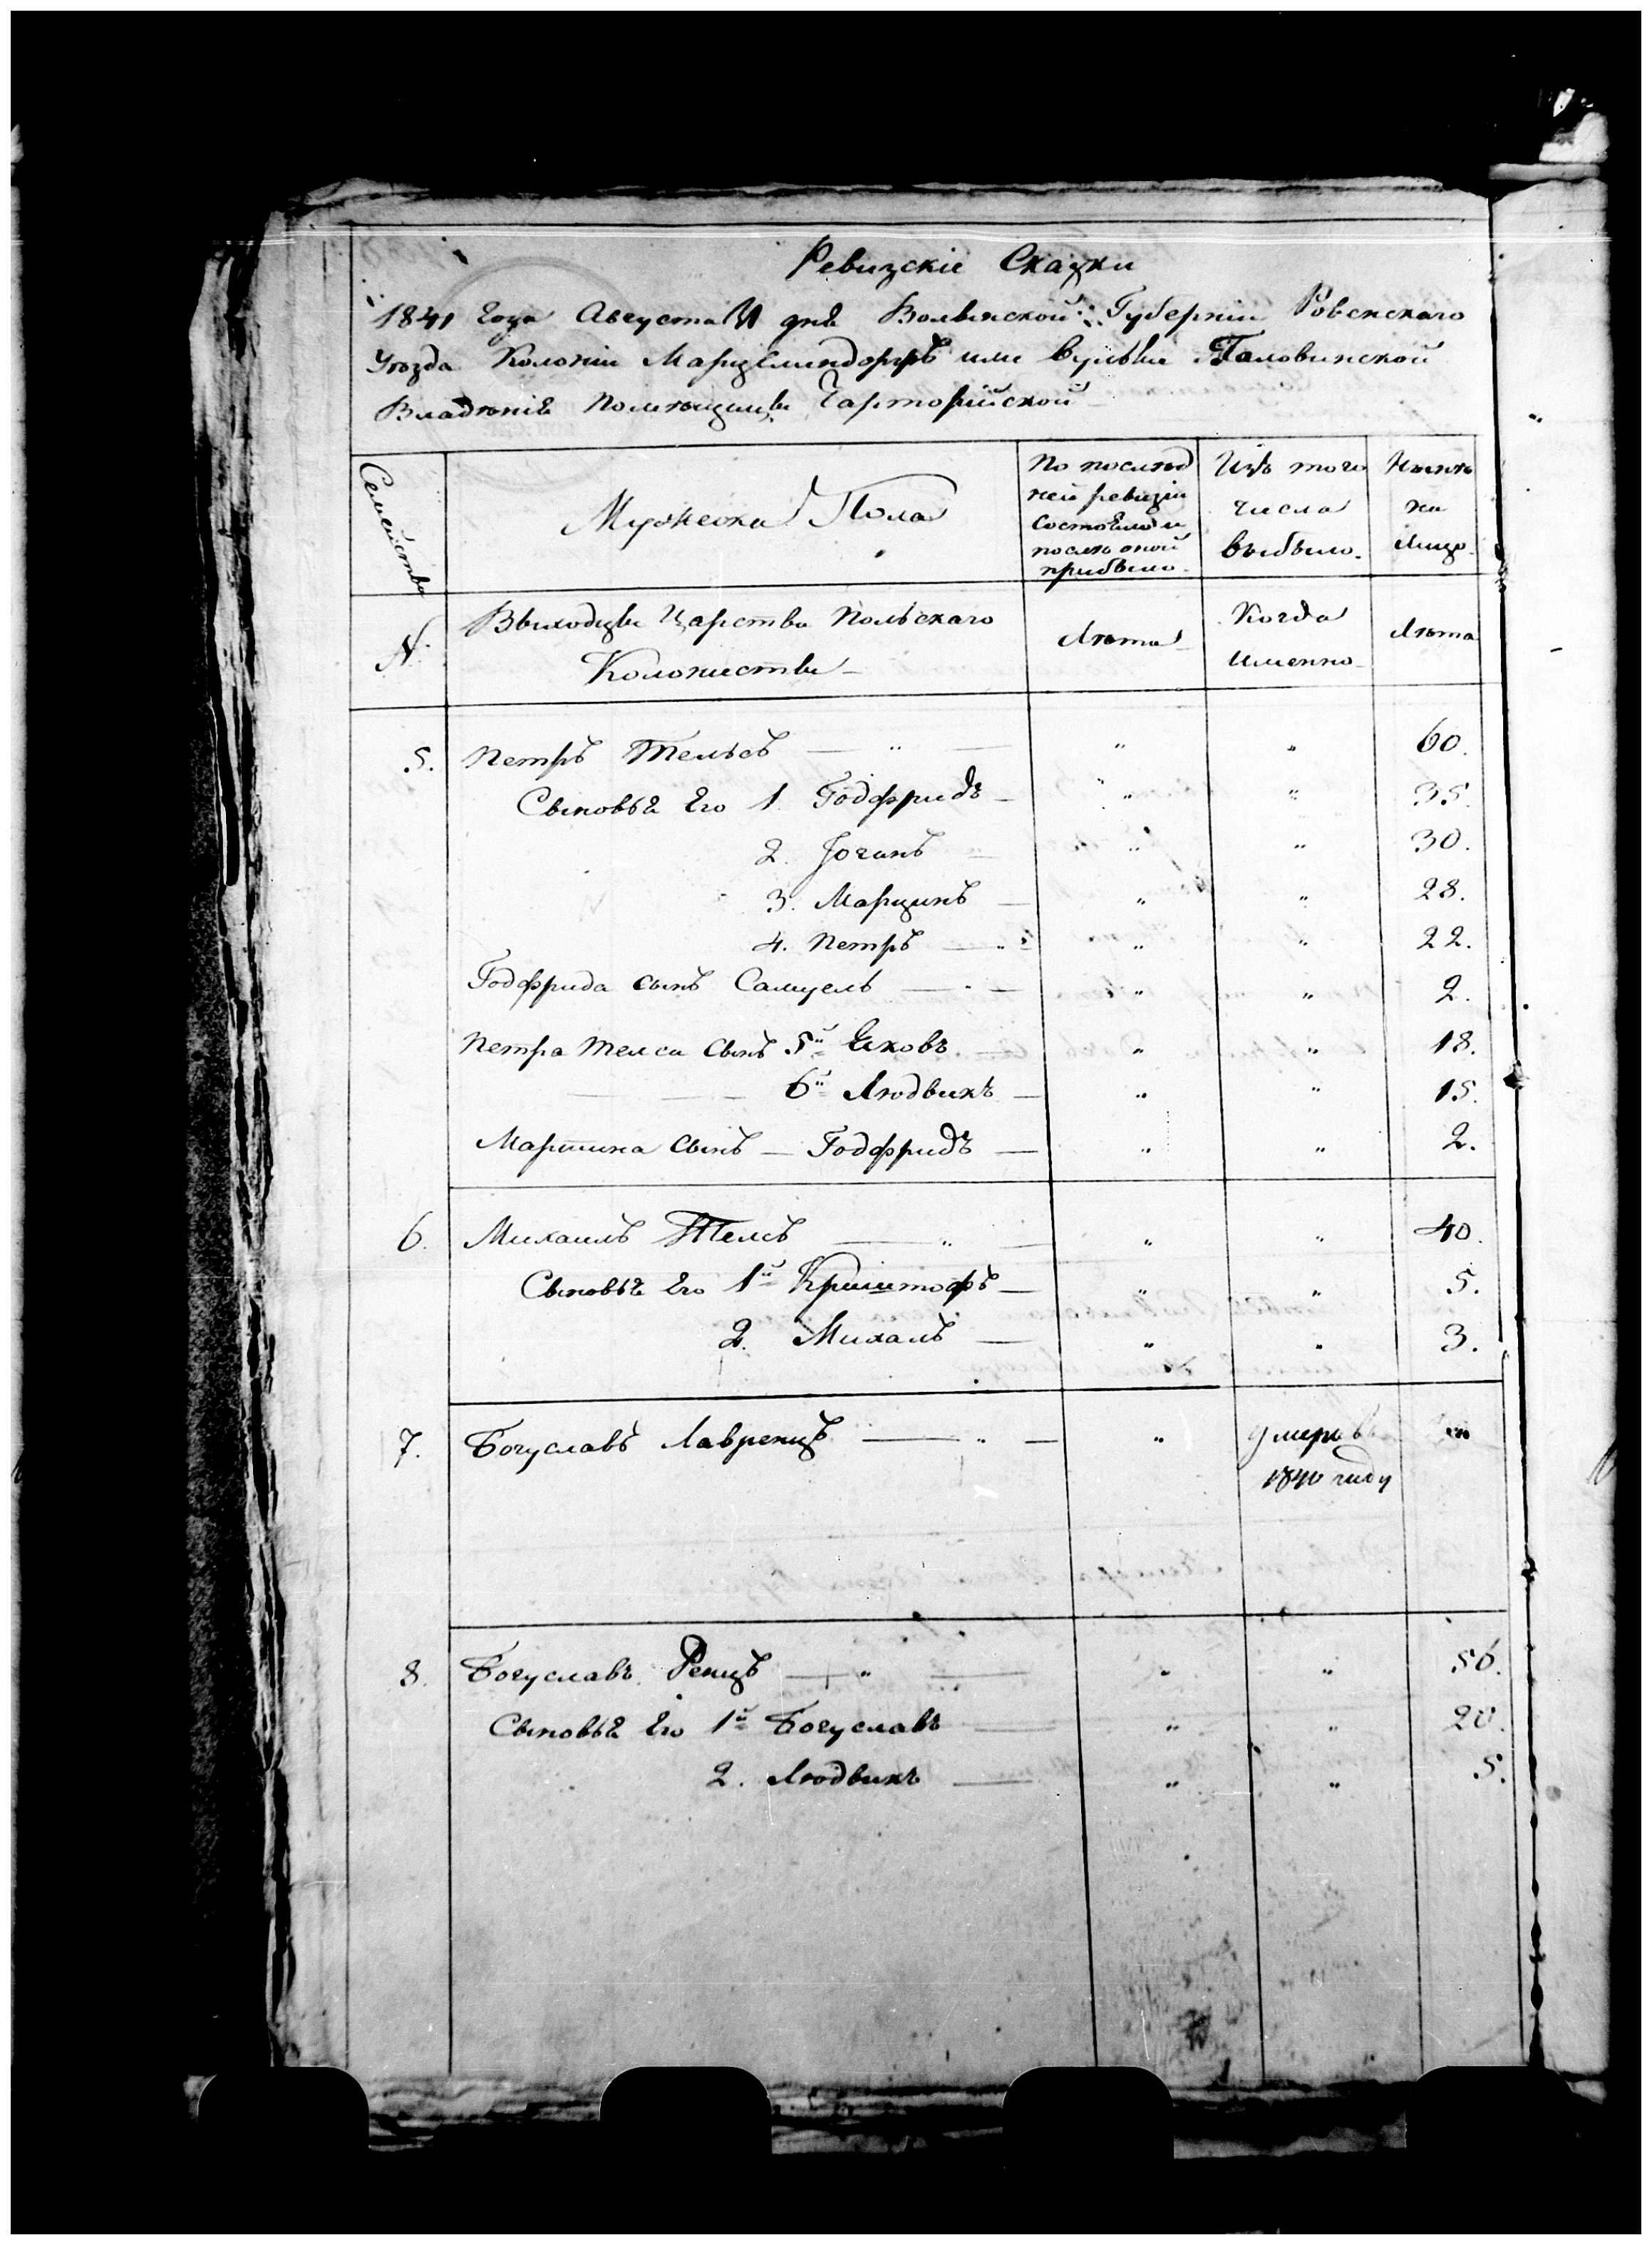 Ревизскіе Сказки
1841 Года Августа 31 дня Волынской Губерніи Ровенскаго
Уѣзда Колоніи Марцелиндорфъ или Вульки Головинской
Владѣніе Помѣщицы Чарторійской
Семейство
Мужеска Пола
По послѣд
ней ревизіи
состояло и
послѣ оной
прибыло.
Изъ того
числа
выбыло.
Нынѣ
на
лицо.
№
Выходцы Царства Польскаго
Колонисты
Лѣта
Когда
именно
Лѣта
5. Петръ Тельсъ — " — " " 60.
Сыновья Его 1. Годфридъ — " " 35.
2. Јоганъ — " " 30.
3. Марцинъ — " " 28.
4. Петръ — " " 22.
Годфрида сынъ Самуель — " " 2.
Петра Телса сынъ 5й Яковъ — " " 18.
6й Людвикъ — " " 15.
Мартина сынъ — Годфридъ — " " 2.
6. Михаилъ Телсъ — " — " " 40.
Сыновья Его 1й Криштофъ — " " 5.
2. Михалъ — " " 3.
7. Богуславъ Лавренцъ — " — " умеръ в
1840 году
8. БогуславъРенцъ — " — " " 56.
Сыновья Его 1й Богуславъ — " " 20.
2. Людвикъ — " " 5.